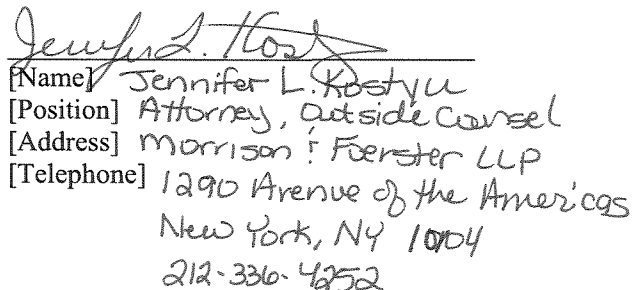 Jennifer L. Kost
[Name] Jennifer L. Kostyu
[Position] Attorney, Outside Counsel
[Address] Morrison & Foerster LLP
[Telephone] 1290 Avenue of the Americas
New York, NY 10104
212-336-4252